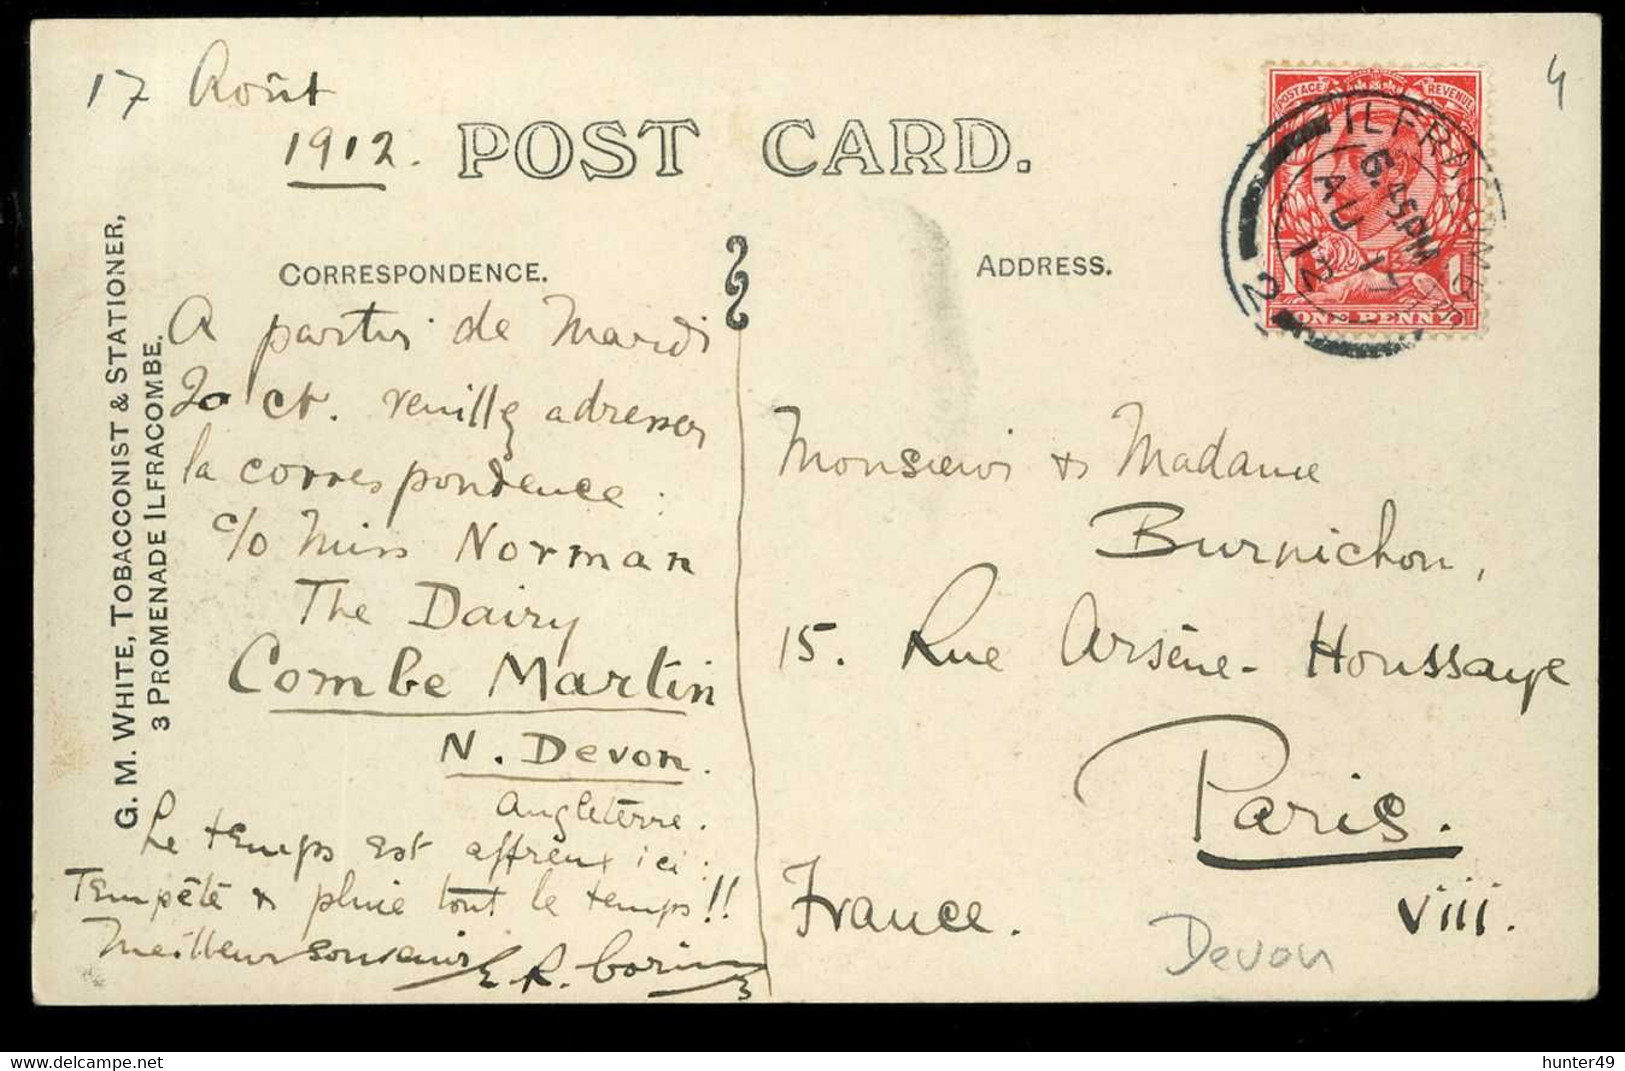 17 Août
1912.
POST CARD.
4
POSTAGE
REVENUE
ILFRACOMBE
6.45PM
AU 17
12
2
1
ONE PENNY
G. M. WHITE, TOBACCONIST & STATIONER,
3 PROMENADE ILFRACOMBE.
CORRESPONDENCE.
A partir de Mardi
20 ct. veuillez adresser
la correspondence :
c/o Miss Norman
The Dairy
Combe Martin
N. Devon.
Angleterre.
Le temps est affreux ici :
Tempête & pluie tout le temps!!
Meilleur souvenir
E. R.
ADDRESS.
Monsieur & Madame
Burnichon,
15. Rue Arsène-Houssaye
Paris.
viii.
France.
Devon
delcampe.net
hunter49